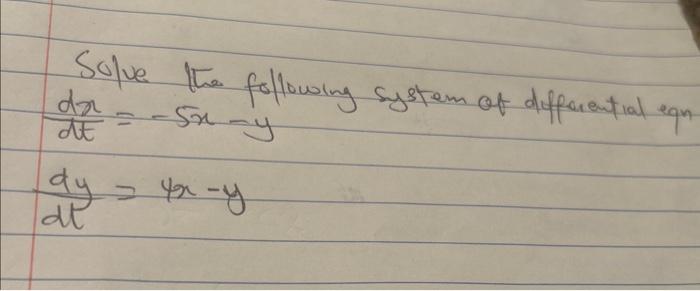 Solve the following system of differential eqn
dx/dt = -5x - y
dy/dt = 4x - y